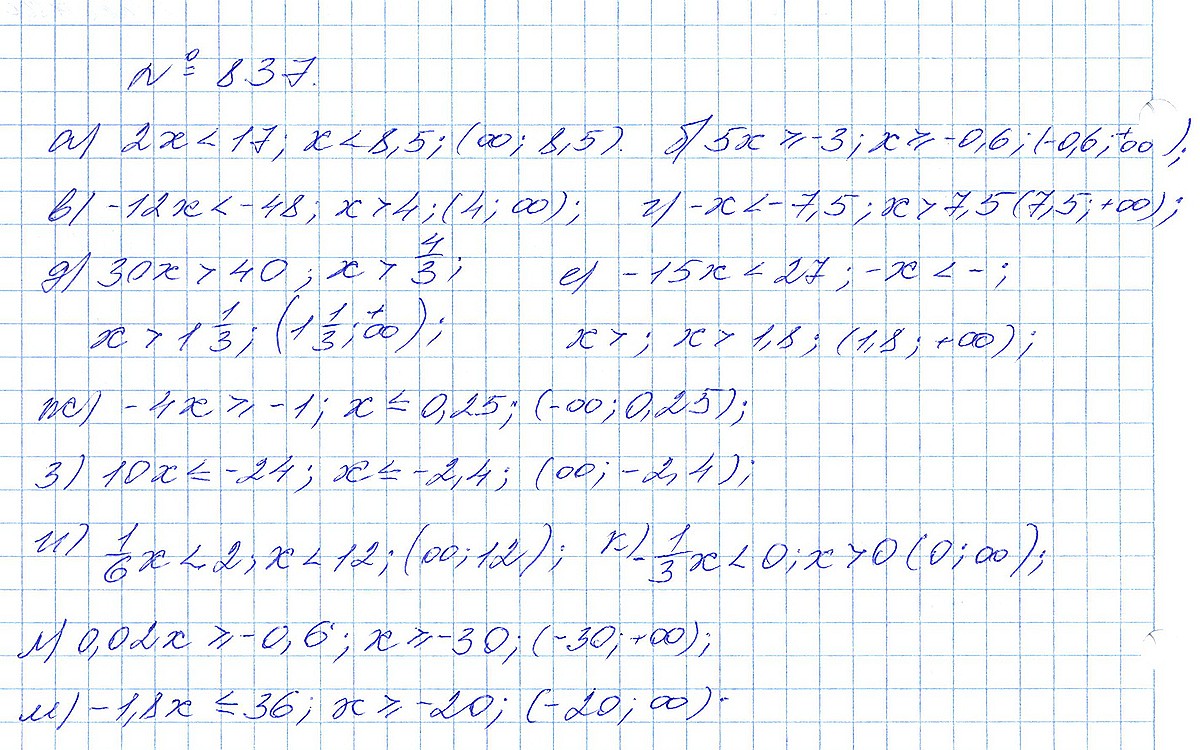 № 837.
а) 2x < 17; x < 8,5; (∞; 8,5). б) 5x ⩾ -3; x ⩾ -0,6; (-0,6; +∞);
в) -12x < -48; x > 4; (4; ∞); г) -x < -7,5; x > 7,5 (7,5; +∞);
д) 30x > 40; x > 4/3; е) -15x < 27; -x < -;
x > 1 1/3; (1 1/3; +∞); x > ; x > 1,8; (1,8; +∞);
ж) -4x ⩾ -1; x ≤ 0,25; (-∞; 0,25);
з) 10x ≤ -24; x ≤ -2,4; (∞; -2,4);
и) 1/6 x < 2; x < 12; (∞; 12); к) -1/3 x < 0; x > 0 (0; ∞);
л) 0,02x ⩾ -0,6; x ⩾ -30; (-30; +∞);
м) -1,8x ≤ 36; x ⩾ -20; (-20; ∞).